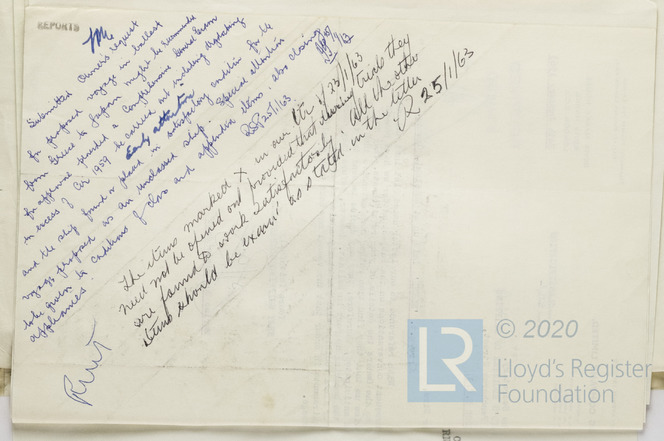 REPORTS
Submitted Owners request
for proposed voyage in ballast
from Greece to Japan might be
for approval provided a Comprehensive General Exam
in excess of Cir 1959 be carried out including drydocking
Early attention
and the ship found or placed in satisfactory condition for the
voyage proposed as an unclassed ship. Special attention
to be given to conditions of class and appendix items, also closing
appliances.
25/1/63
The items marked X in our ltr 23/1/63
need not be opened out provided that during trials they
are found to work satisfactorily. All the other
items should be exam'd as stated in the letter
25/1/63
LR
© 2020
Lloyd's Register
Foundation